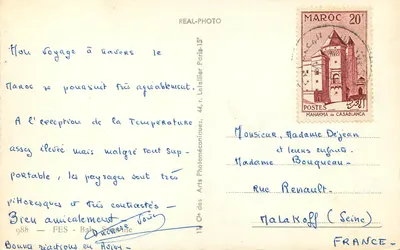 REAL-PHOTO
Mon voyage à travers le
Maroc se poursuit très agréablement.
A l'exception de la Température
assez élevée mais malgré tout sup-
portable, les paysages sont très
pittoresques et très contrastés -
Bien amicalement -
988 - FES - Bab
Bonne
Cie des Arts Photomécaniques, 44, r. Letellier Paris-15e
MAROC 20F
POSTES
MAHAKMA DE CASABLANCA
Monsieur, Madame Dejean
et leurs enfants
Madame Bouqueau
rue Renault
Malakoff (Seine)
FRANCE.